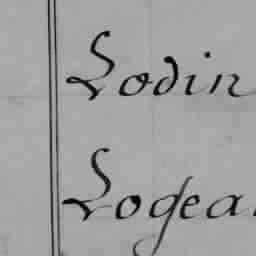 Lodin
Logea